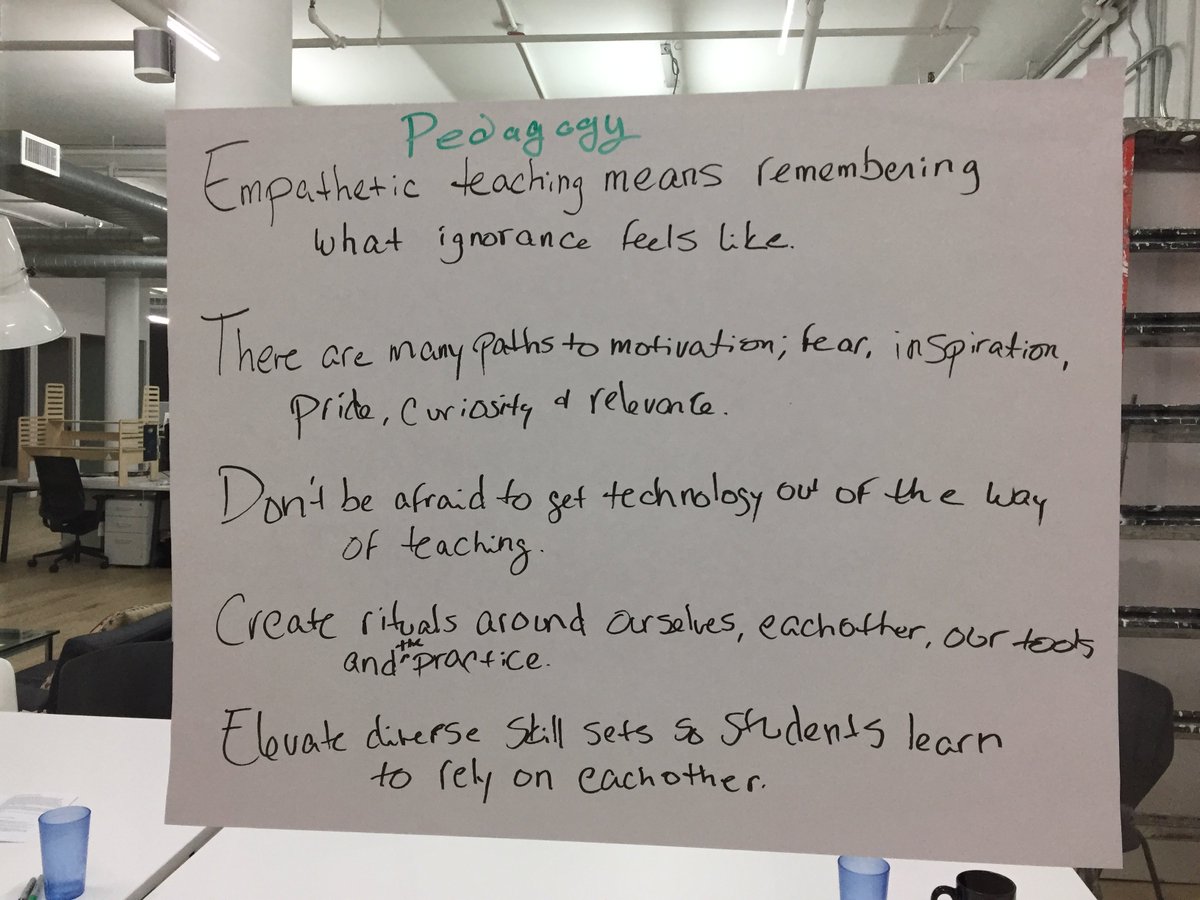 Pedagogy
Empathetic teaching means remembering
what ignorance feels like.
There are many paths to motivation; fear, inspiration,
pride, curiosity & relevance.
Don't be afraid to get technology out of the way
of teaching.
Create rituals around ourselves, eachother, our tools
and the practice.
Elevate diverse skill sets so students learn
to rely on eachother.